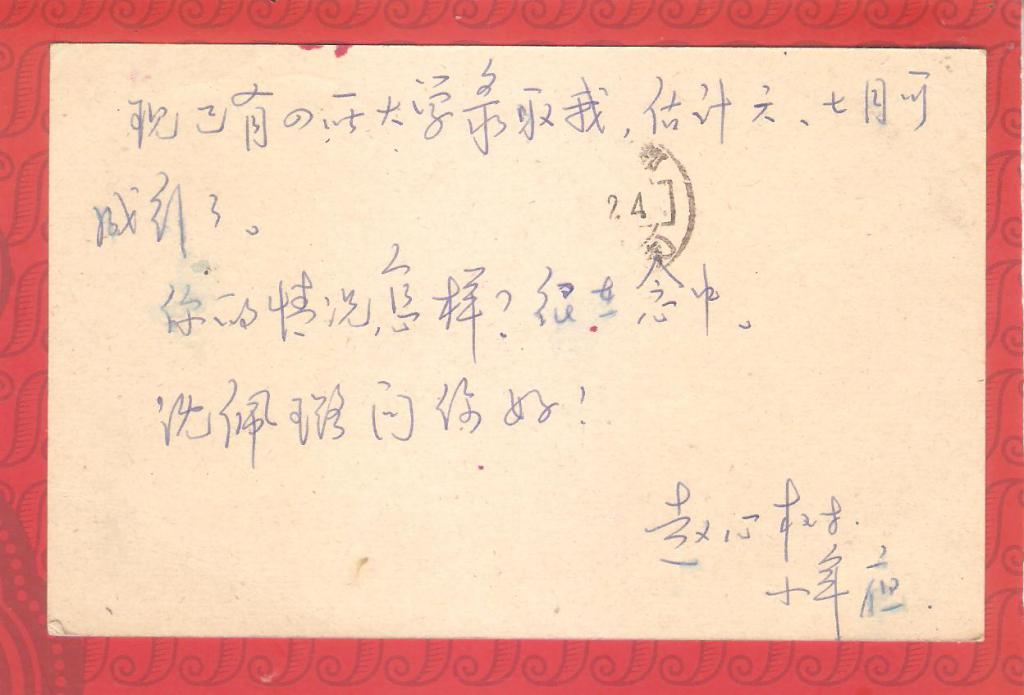 现已有四所大学录取我，估计六、七月可
成行了。
24
你的情况怎样？很在念中。
沈佩璐问你好！
赵心树
小年